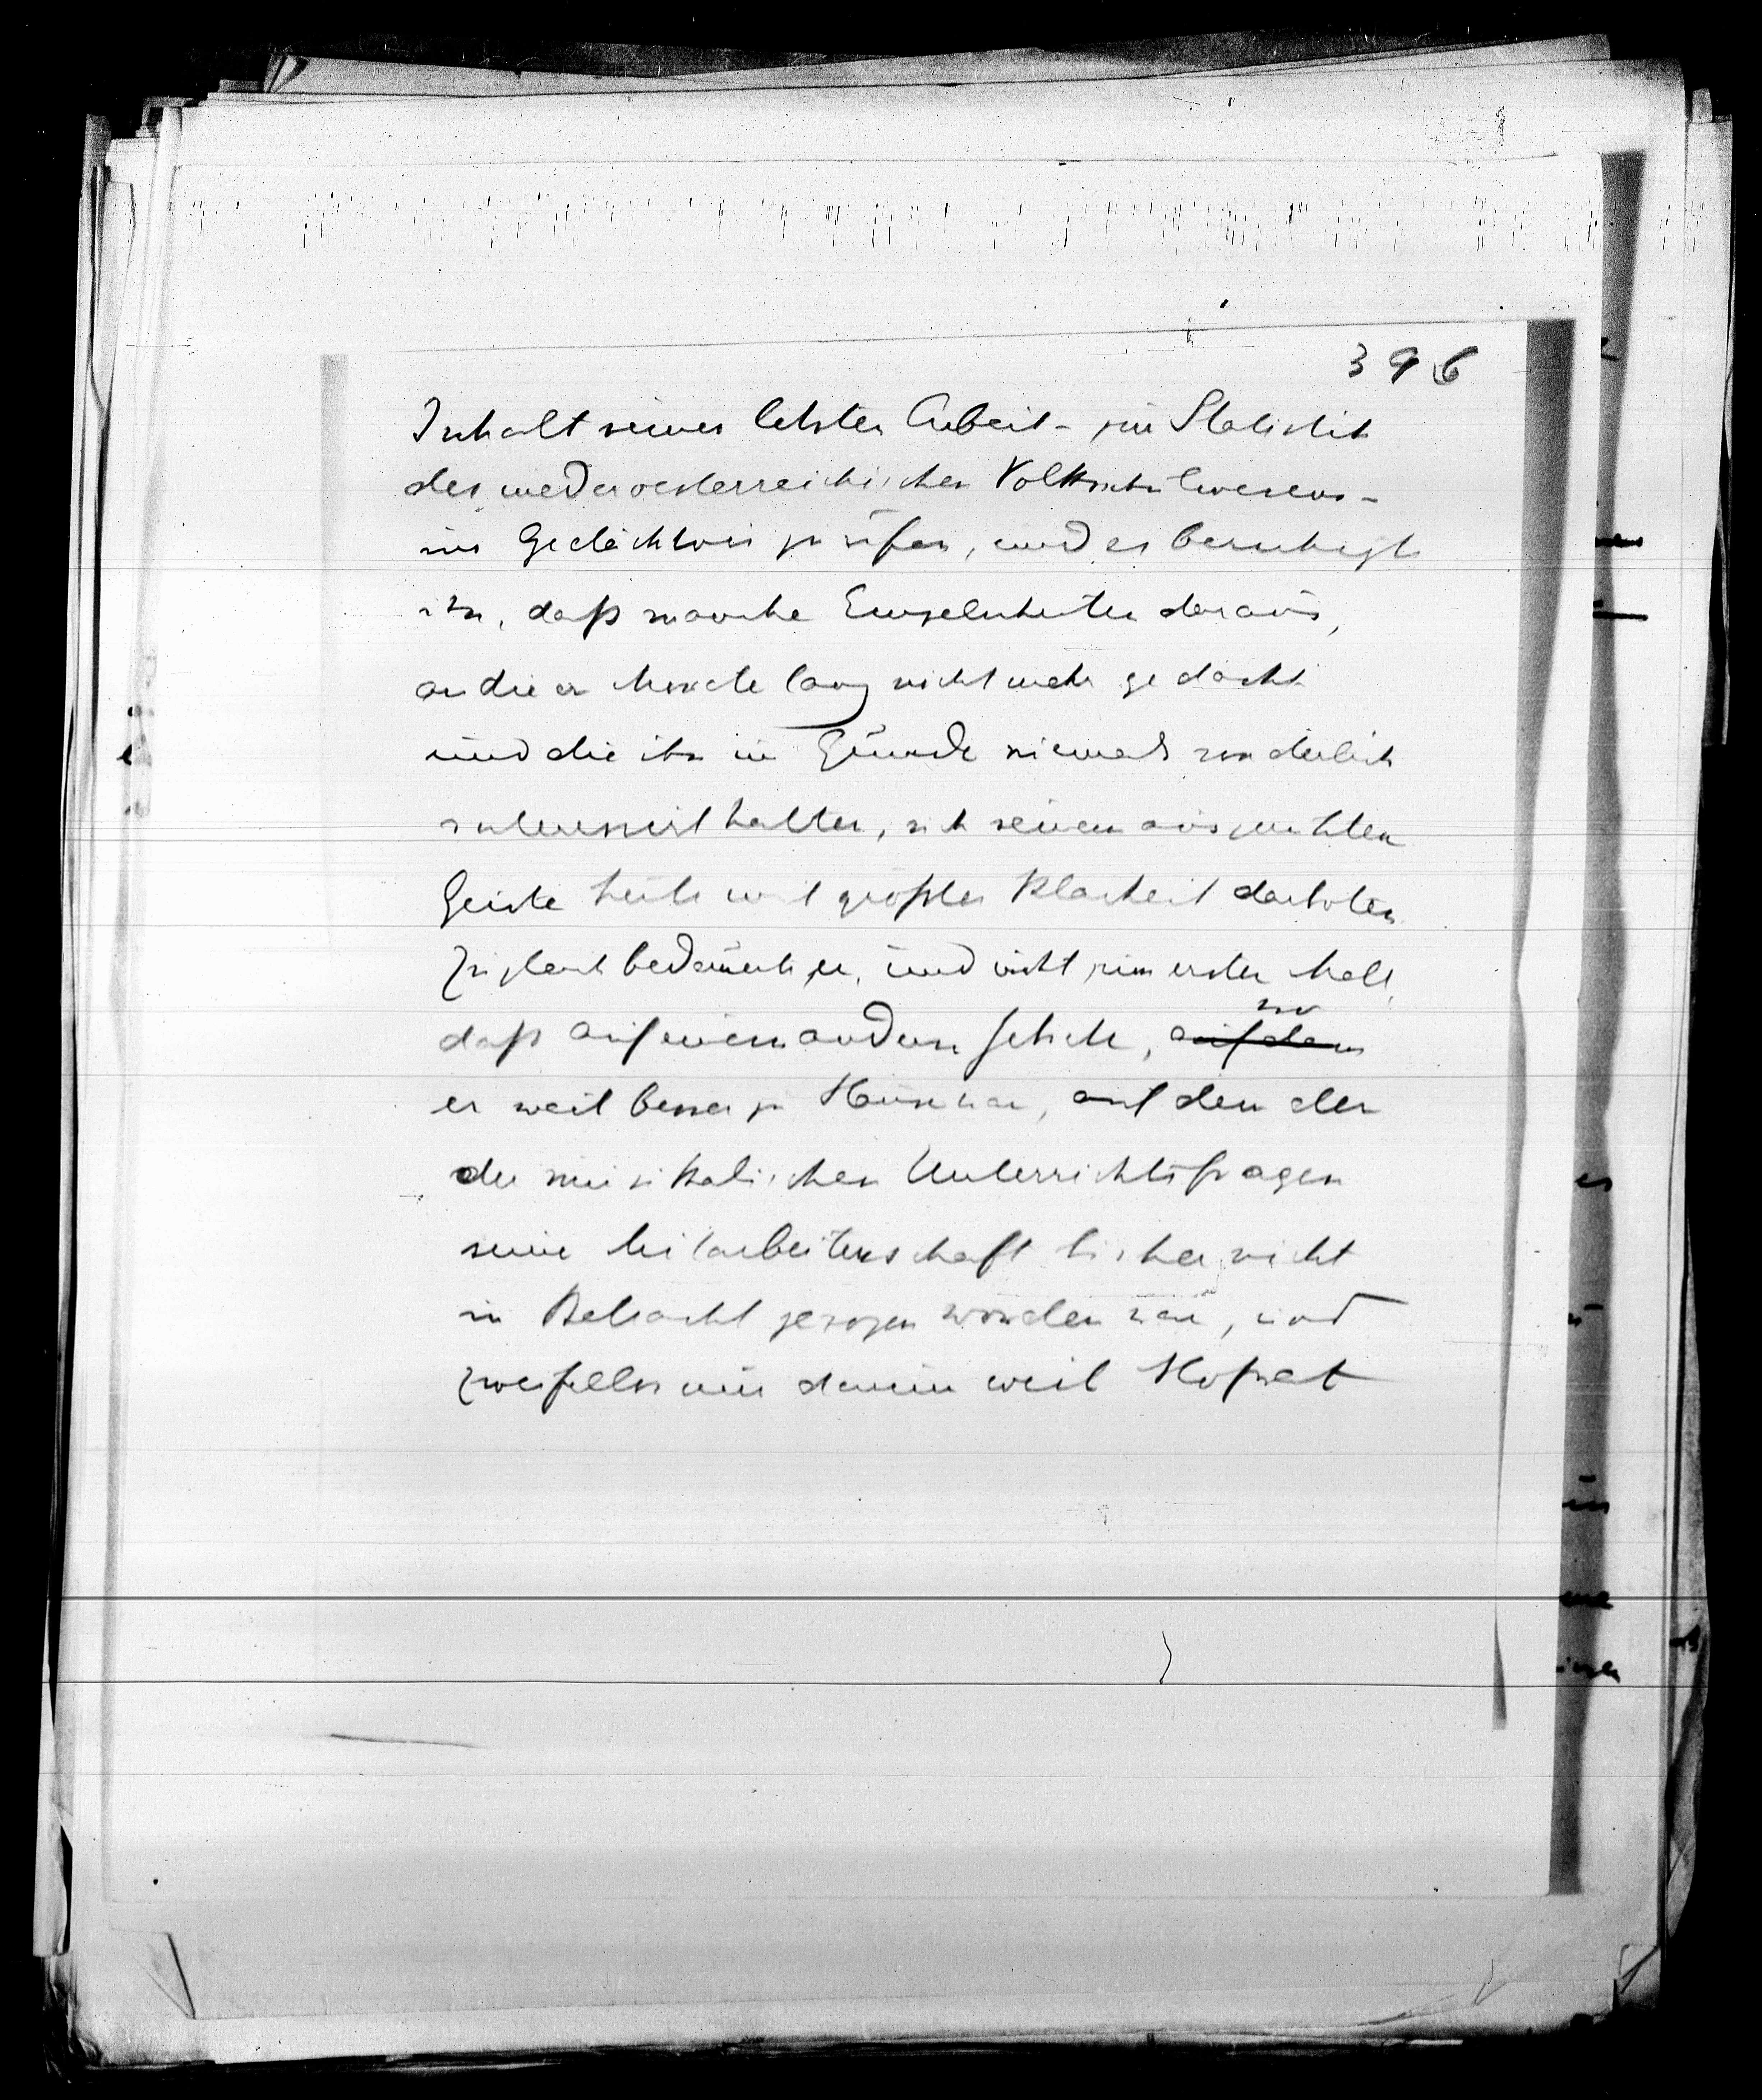 396
Inhalt seiner letzten Arbeit – zur Statistik
des niederoesterreichischen Volksschulwesens –
ins Gedächtnis zu rufen, und es beruhigt
ihn, daß manche Einzelnheiten daraus,
an die er Monate lang nicht mehr gedacht
und die ihn im Grunde niemals sonderlich
interessirt hatten, sich seinem ausgeruhten
Geiste heute mit größter Klarheit darboten
Zugleich bedauerte er, und nicht zum ersten Mal,
daß auf einem andern Gebiete, auf dem
wo
er weit besser zu Hause war, auf dem der
der musikalischen Unterrichtsfragen
seine Mitarbeiterschaft bisher nicht
in Betracht gezogen worden war, und
zweifellos nur darum weil Hofrat